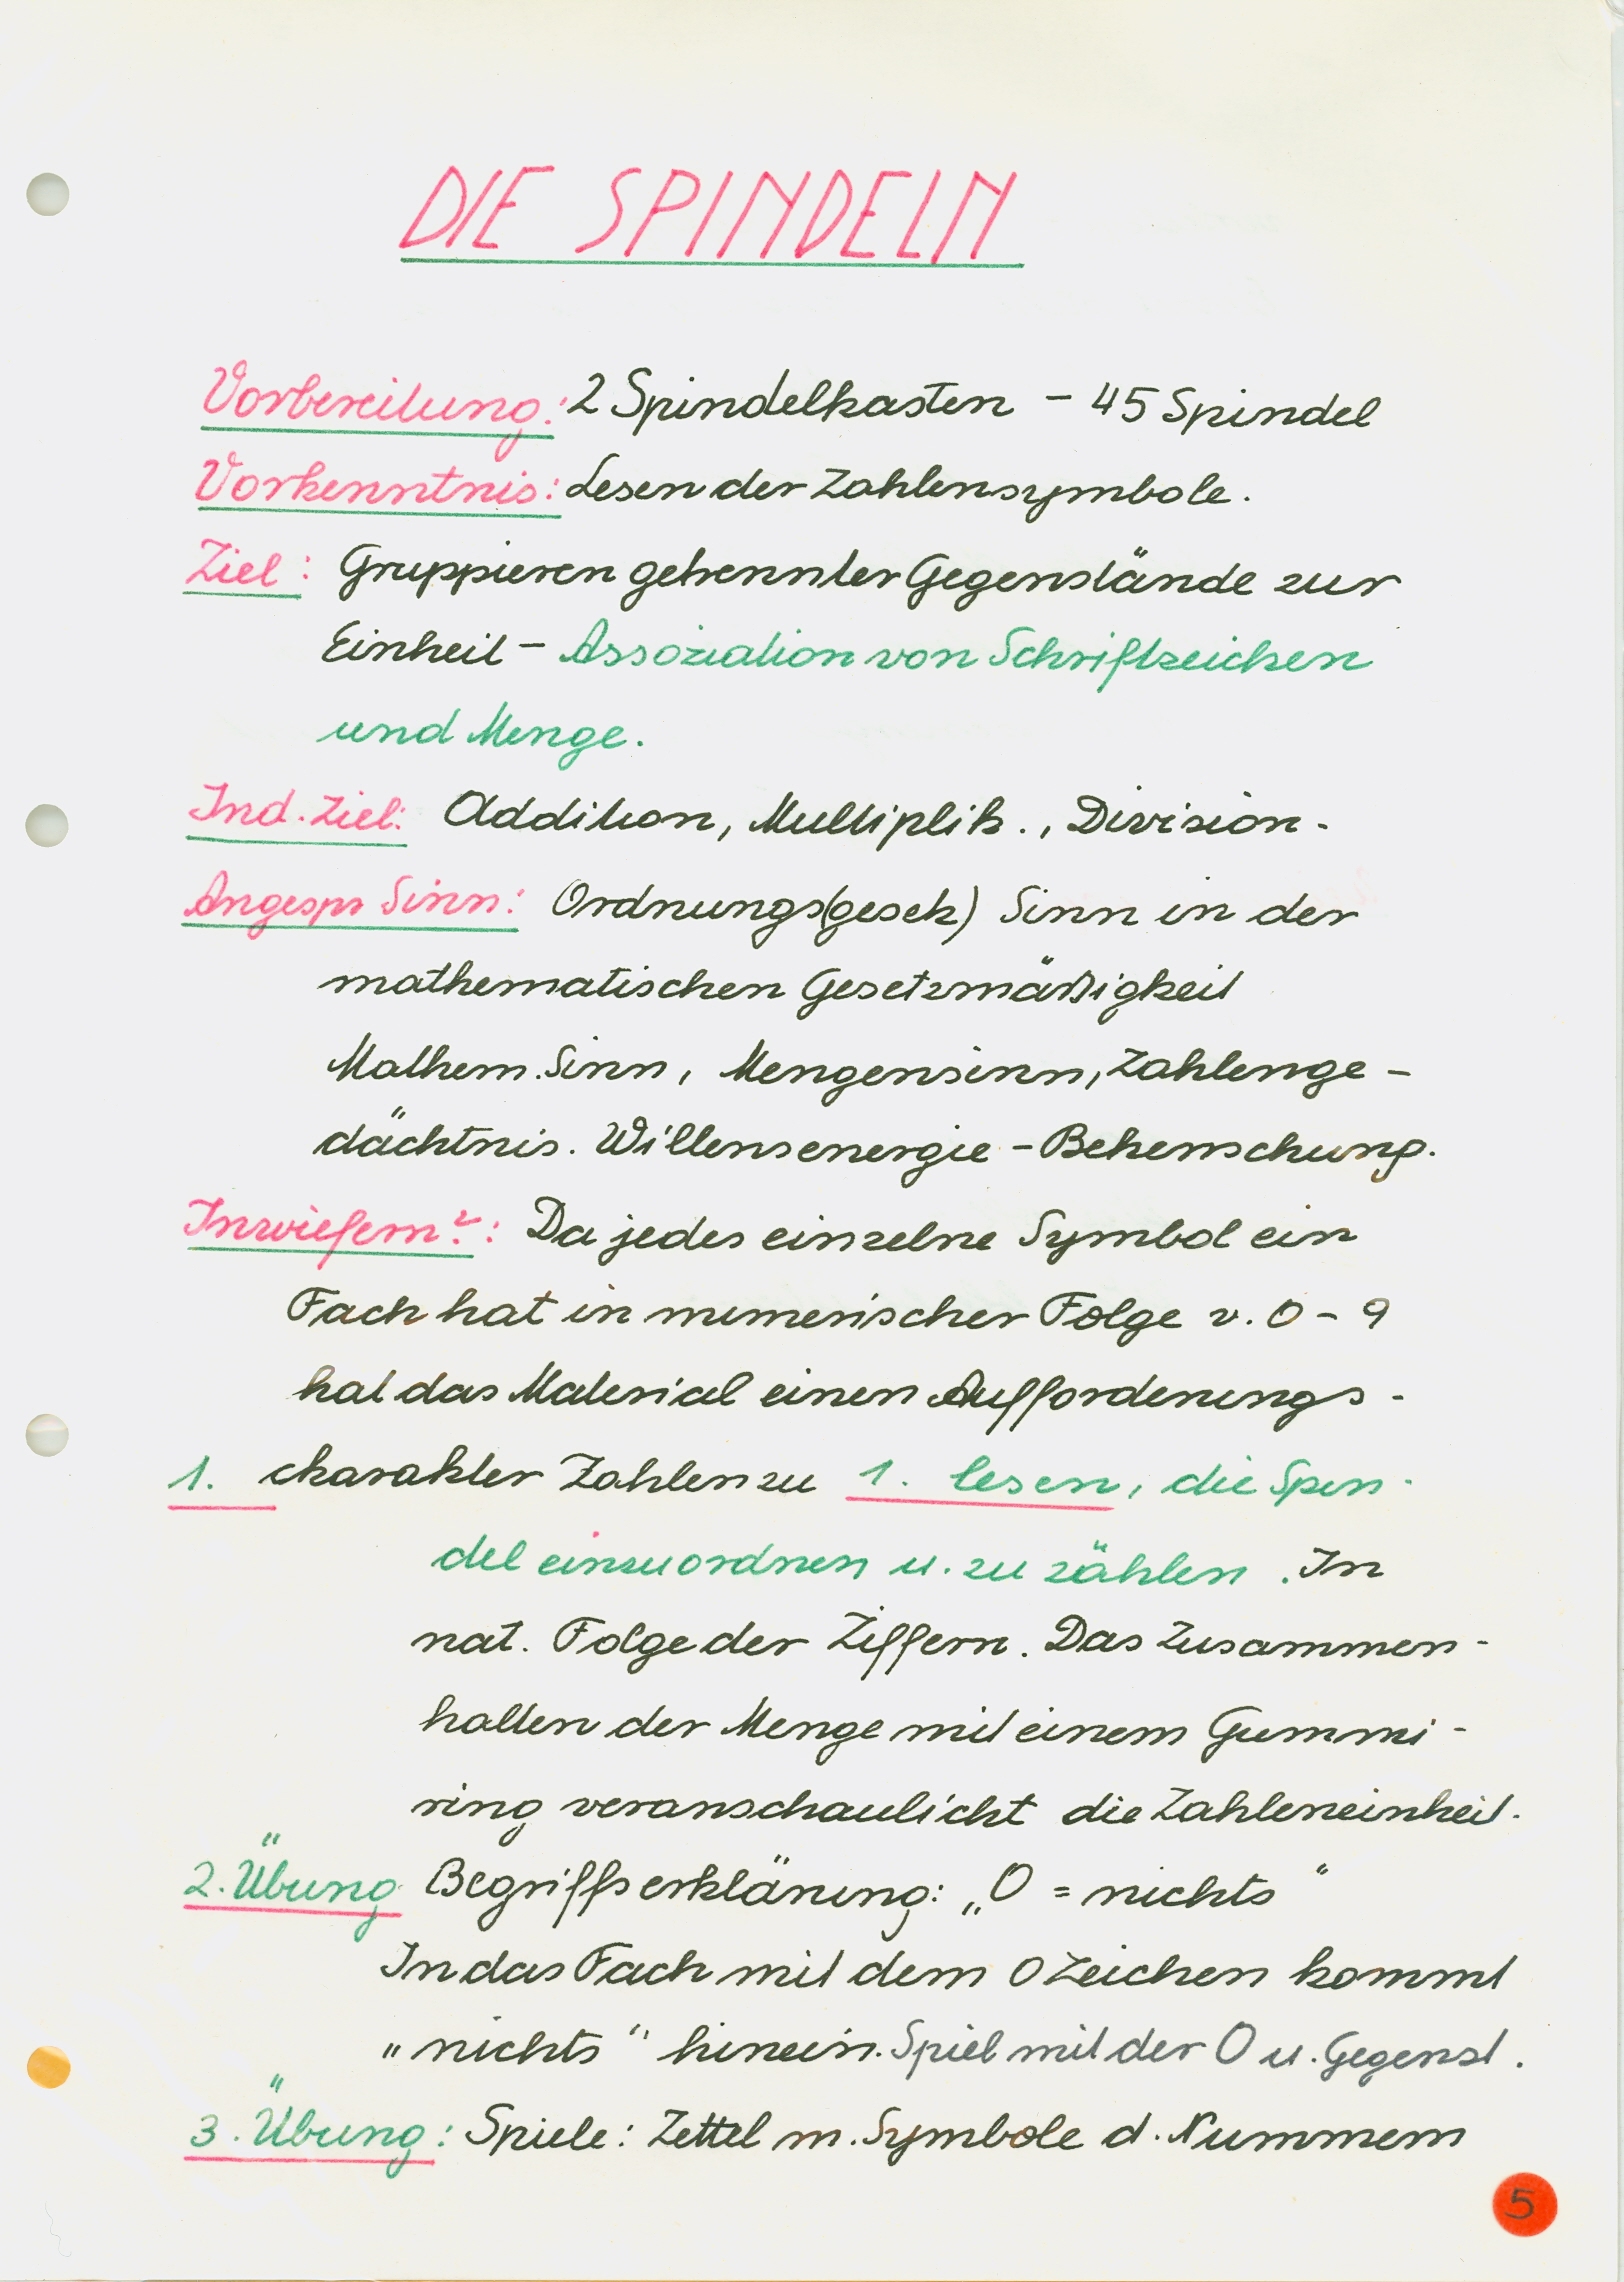 DIE SPINDELN
Vorbereitung: 2 Spindelkasten – 45 Spindel
Vorkenntnis: Lesen der Zahlensymbole.
Ziel: Gruppieren getrennter Gegenstände zur
Einheit – Assoziation von Schriftzeichen
und Menge.
Ind. Ziel: Addition, Multiplik., Division.
Angespr Sinn: Ordnungs(gesetz) Sinn in der
mathematischen Gesetzmäßigkeit
Mathem. Sinn, Mengensinn, Zahlenge-
dächtnis. Willensenergie – Beherrschung.
Inwiefern?: Da jedes einzelne Symbol ein
Fach hat in numerischer Folge v. 0 – 9
hat das Material einen Aufforderungs-
1. charakter Zahlen zu 1. lesen, die Spin-
del einzuordnen u. zu zählen. In
nat. Folge der Ziffern. Das Zusammen-
halten der Menge mit einem Gummi-
ring veranschaulicht die Zahleneinheit.
2. Übung Begriffserklärung: „0 = nichts"
In das Fach mit dem 0 Zeichen kommt
„nichts" hinein. Spiel mit der 0 u. Gegenst.
3. Übung: Spiele: Zettel m. Symbole d. Nummern
5